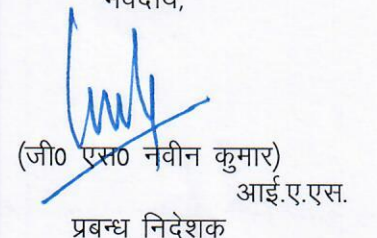 भवदीय,
(जी0 एस0 नवीन कुमार)
आई.ए.एस.
प्रबन्ध निदेशक